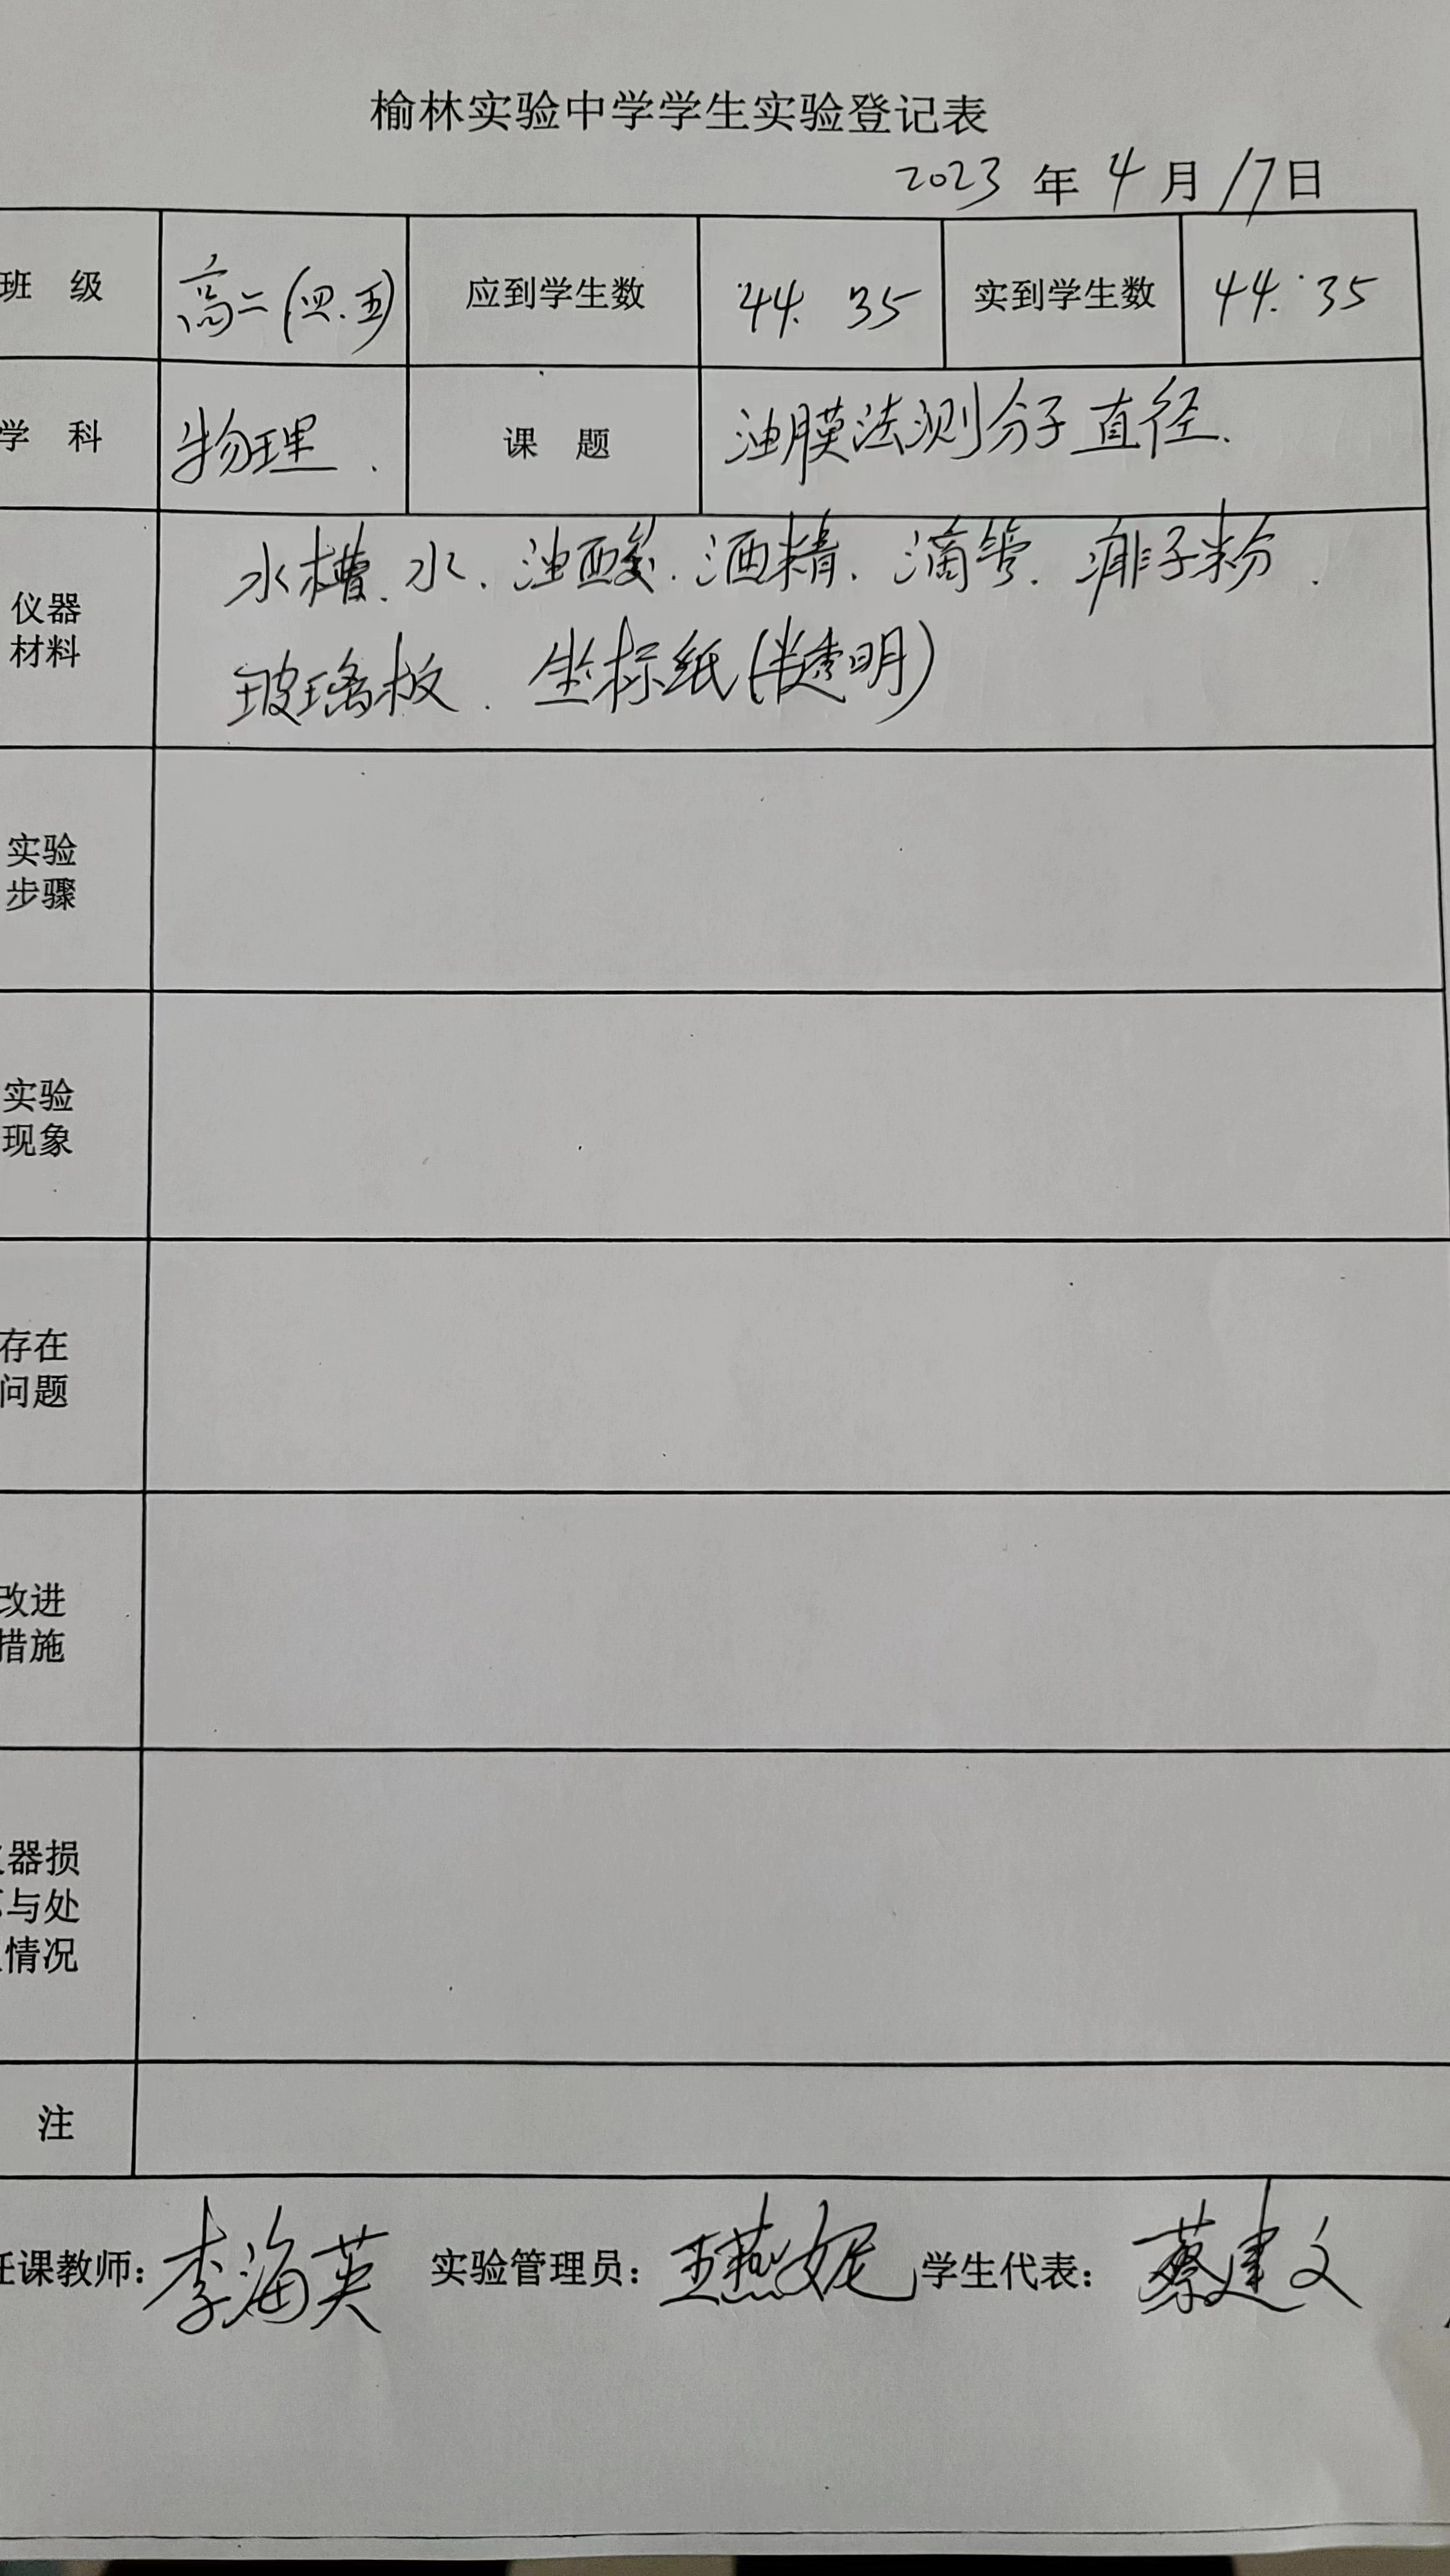 榆林实验中学学生实验登记表
2023 年 4 月 17 日
班 级 高二(四.五) 应到学生数 44. 35 实到学生数 44. 35
学 科 物理. 课 题 油膜法测分子直径.
仪器
材料
水槽、水、油酸、酒精、滴管、痱子粉、
玻璃板、坐标纸(半透明)
实验
步骤
实验
现象
存在
问题
改进
措施
器损
与处
情况
注
任课教师: 李海英 实验管理员: 王燕妮 学生代表: 蔡建文